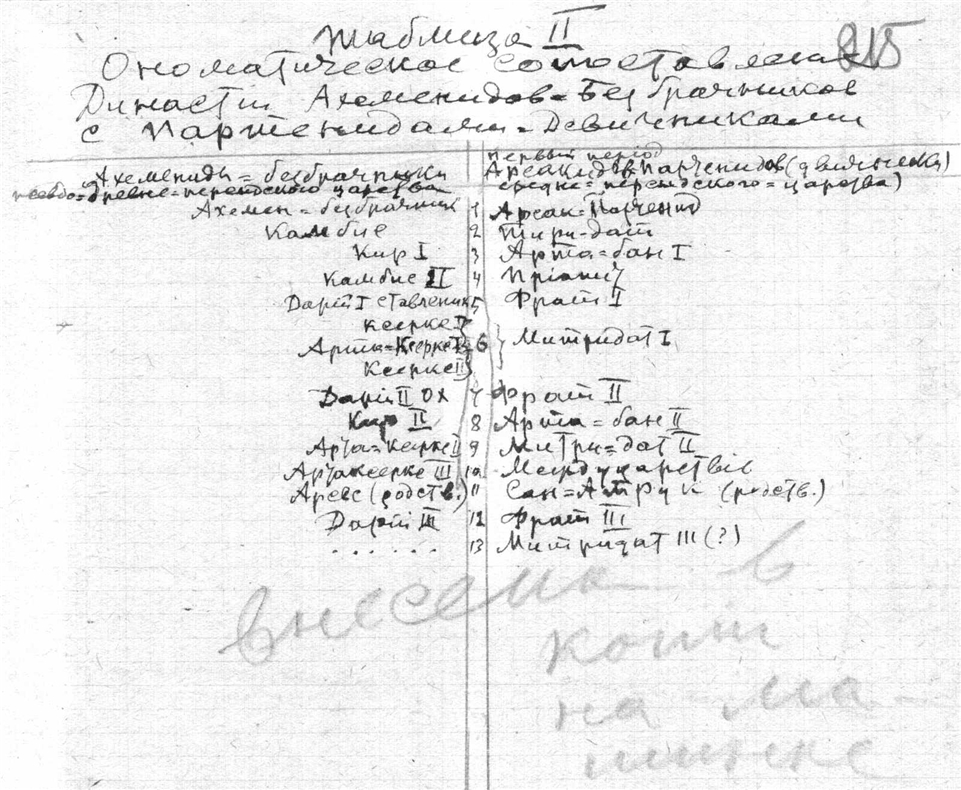 Таблица II
215
Ономатическое сопоставление
Династіи Ахеменидов=Безбрачников
с Партенидами=Девичниками
Ахемениды=безбрачники
псевдо=древне=персидского царства
первый период
Арсакидов Парченидов (девичников)
средне=персидского=царства)
Ахемен=безбрачник 1 Арсак=Парченид
Камбис 2 Тири-дат
Кир I 3 Арта=бан I
Камбис II 4 Пріапит
Дарій I ставленик 5 Фраат I
Ксеркс I
Арта=Ксеркс I 6 Митридат I
Ксеркс II
Дарій II Ох 7 Фраат II
Кир II 8 Арта=бан II
Арта=Ксеркс II 9 Митри=дат II
Артаксеркс III 10 Междуцарствіе
Арсес (родств.) 11 Сан=Атрук (родств.)
Дарій III 12 Фраат III
. . . . . . . 13 Митридат III (?)
внесена в
копии
на ма-
шинке